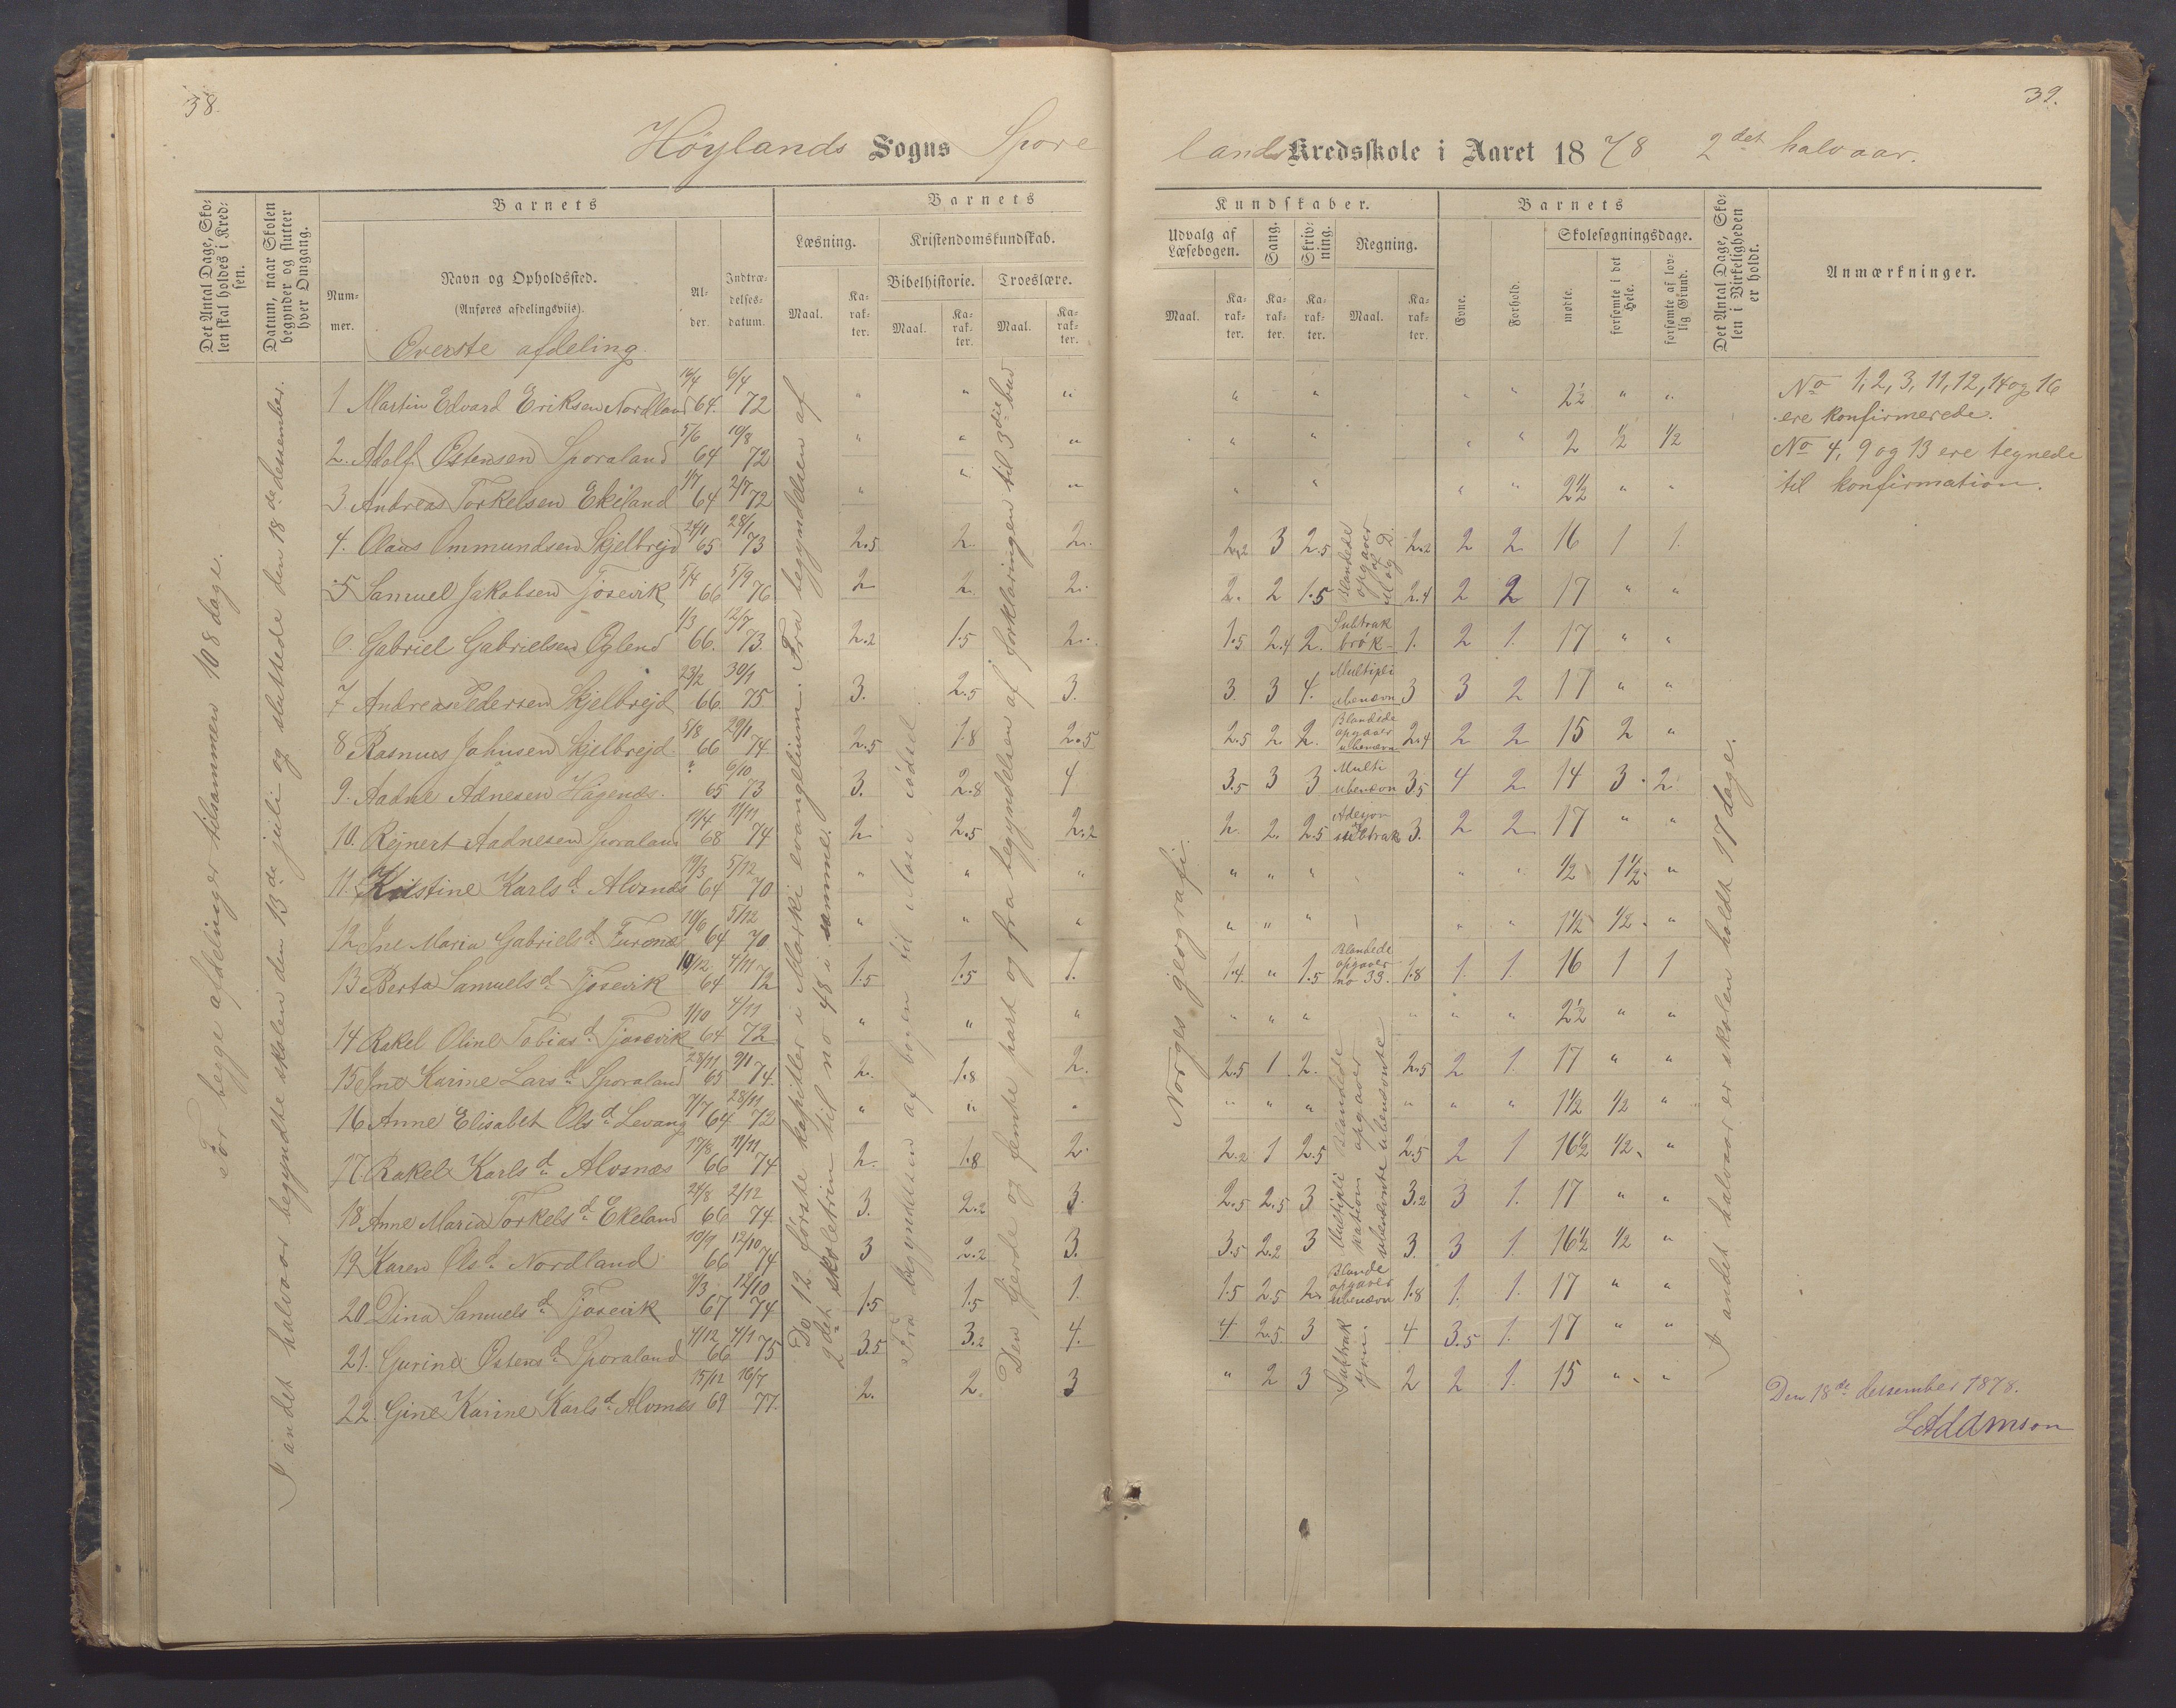 38.
39.
Höylands Sogns Spore
lands Kredsskole i Aaret 1878 2det halvaar.
Det Antal Dage, Sko-
len skal holdes i Kred-
sen.
Datum, naar Skolen
begynder og slutter
hver Omgang.
Barnets
Num-
mer.
Navn og Opholdssted.
(Anføres afdelingsviis).
Overste afdeling.
Al-
der.
Indtræ-
delses-
datum.
Barnets
Læsning.
Kristendomskundskab.
Bibelhistorie. Troeslære.
Maal. Ka-
rak-
ter. Maal. Ka-
rak-
ter. Maal. Ka-
rak-
ter.
Kundskaber.
Udvalg af
Læsebogen.
Sang.
Skriv-
ning.
Regning.
Maal. Ka-
rak-
ter. Ka-
rak-
ter. Ka-
rak-
ter. Maal. Ka-
rak-
ter.
Barnets
Evne.
Forhold.
Skolesøgningsdage.
mødte.
forsømte i det
Hele.
forsømte af lov-
lig Grund.
Det Antal Dage, Sko-
len i Virkeligheden
er holdt.
Anmærkninger.
For begge afdelinger tilsammen 108 dage.
I andet halvaar begyndte skolen den 13de juli og sluttede den 18de desember.
De 12 første kapitler i Marski evangelium. Fra begyndelsen af
2det skoletrin til no 48 i samme.
Fra begyndelsen af bogen til Mose fødsel
Den fjerde og femte part og fra begyndelsen af forklaringen til 3die bud
Norges geografi.
I andet halvaar er skolen holdt 17 dage.
1 Martin Edvard Eriksen Nordland 16/4 64. 6/4 72 " " " " " " " 2½ " "
2. Adolf Østensen Sporaland 5/6 64 10/8 72 " " " " " " " 2 ½ ½
3. Andreas Torkelsen Ekeland 1/7 64 2/7 72 " " " " " " " 2½ " "
4. Olaus Ommundsen Skjelbrejd 24/1 65 28/1 73 2.5 2. 2. 2.2 3 2.5 Blandede opgaver af M og D. 2.2 2 2 16 1 1.
5 Samuel Jakobsen Tjosevik 5/4 66 5/9 76 2 2. 2. 2. 2 1.5 2.4 2 2 17 " "
6. Gabriel Gabrielsen Oglend 1/3 66. 12/7 73. 2.2 1.5 2. 1.5 2.4 2. Subtrak brøk 1. 2 1. 17 " "
7 Andreas Pedersen Skjelbrejd 23/2 66 30/1 75 3. 2.5 3. 3. 3 4. Multipli ubenævn 3 3 2 17 " "
8 Rasmus Johnsen Skjelbrejd 5/8 66 29/1 74 2.5 1.8 2.5 2.5 2. 2. Blandede opgaver ubenævn 2.4 2 2 15 2 "
9. Aadne Adnesen Hågenæs. 65 6/10 73 3. 2.8 4 3.5 3 3 Multi ubenævn 3.5 4 2 14 3. 2
10. Rejnert Aadnesen Sporaland 11/4 68 11/11 74 2. 2.5 2.2 2. 2. 2.5 Adesjon og subtrak 3. 2 2 17 " "
11. Kristine Karlsd. Alvsnæs 19/3 64 5/12 70 " " " " " " " " ½ 1½ "
12 Ine Maria Gabrielsd. Furenæs 10/6 64 5/12 70 " " " " " " " " 1½ ½ "
13 Berta Samuelsd. Tjosevik 10/12 64 4/11 72 1.5 1.5 1. 1.4 " 1.5 Blandede opgaver no 33. 1.8 1. 1. 16 1 1
14 Rakel Oline Tobiasd. Tjosevik 1/10 64 4/11 72 " " " " " " " " " 2½ " "
15 Ine Karine Larsd. Sporaland 28/11 65 9/1 74. 2. 1.8 2. 2.5 1 2. 2.5 2 1. 17 " "
16 Anne Elisabet Olsd. Levang 7/7 64 28/11 72 " " " " " " " " " 1½ ½ "
17. Rakel Karlsd. Alvsnæs 17/8 66 11/11 74 2. 1.8 2. 2.2 1 2.5 2.5 2 1 16½ ½ "
18 Anne Maria Torkelsd. Ekeland 24/8 66 2/12 74. 3. 2.2 3. 2.5 2.5 3 3.2 3 1. 17 " "
19 Karen Olsd. Nordland 10/9 66 12/10 74 3 2.2 3. 3.5 2.2 3 3. 3 1. 16½ ½ "
20. Dina Samuelsd. Tjosevik 9/3 67 12/10 74 1.5 1.5 1. 1.5 2.5 2. Blande opgaver ubenævn 1.8 1. 1. 17 " "
21. Gurine Østensd. Sporaland 4/12 66 4/1 75 3.5 3.2 4. 4 2.5. 3 Subtrak sjon. 4 3.5 1. 17 " "
22. Gine Karine Karlsd. Alvsnæs 15/12 69 16/7 77. 2. 2. 3 " 2 3 2 2 1. 15 " "
Blandede opgaver ubenævnte
Multipli kation ubenævnte
No 1, 2, 3, 11, 12, 14 og 16
ere konfirmerede.
No 4, 9 og 13 ere tegnede
til konfirmation.
Den 18de desember 1878.
L Addmson